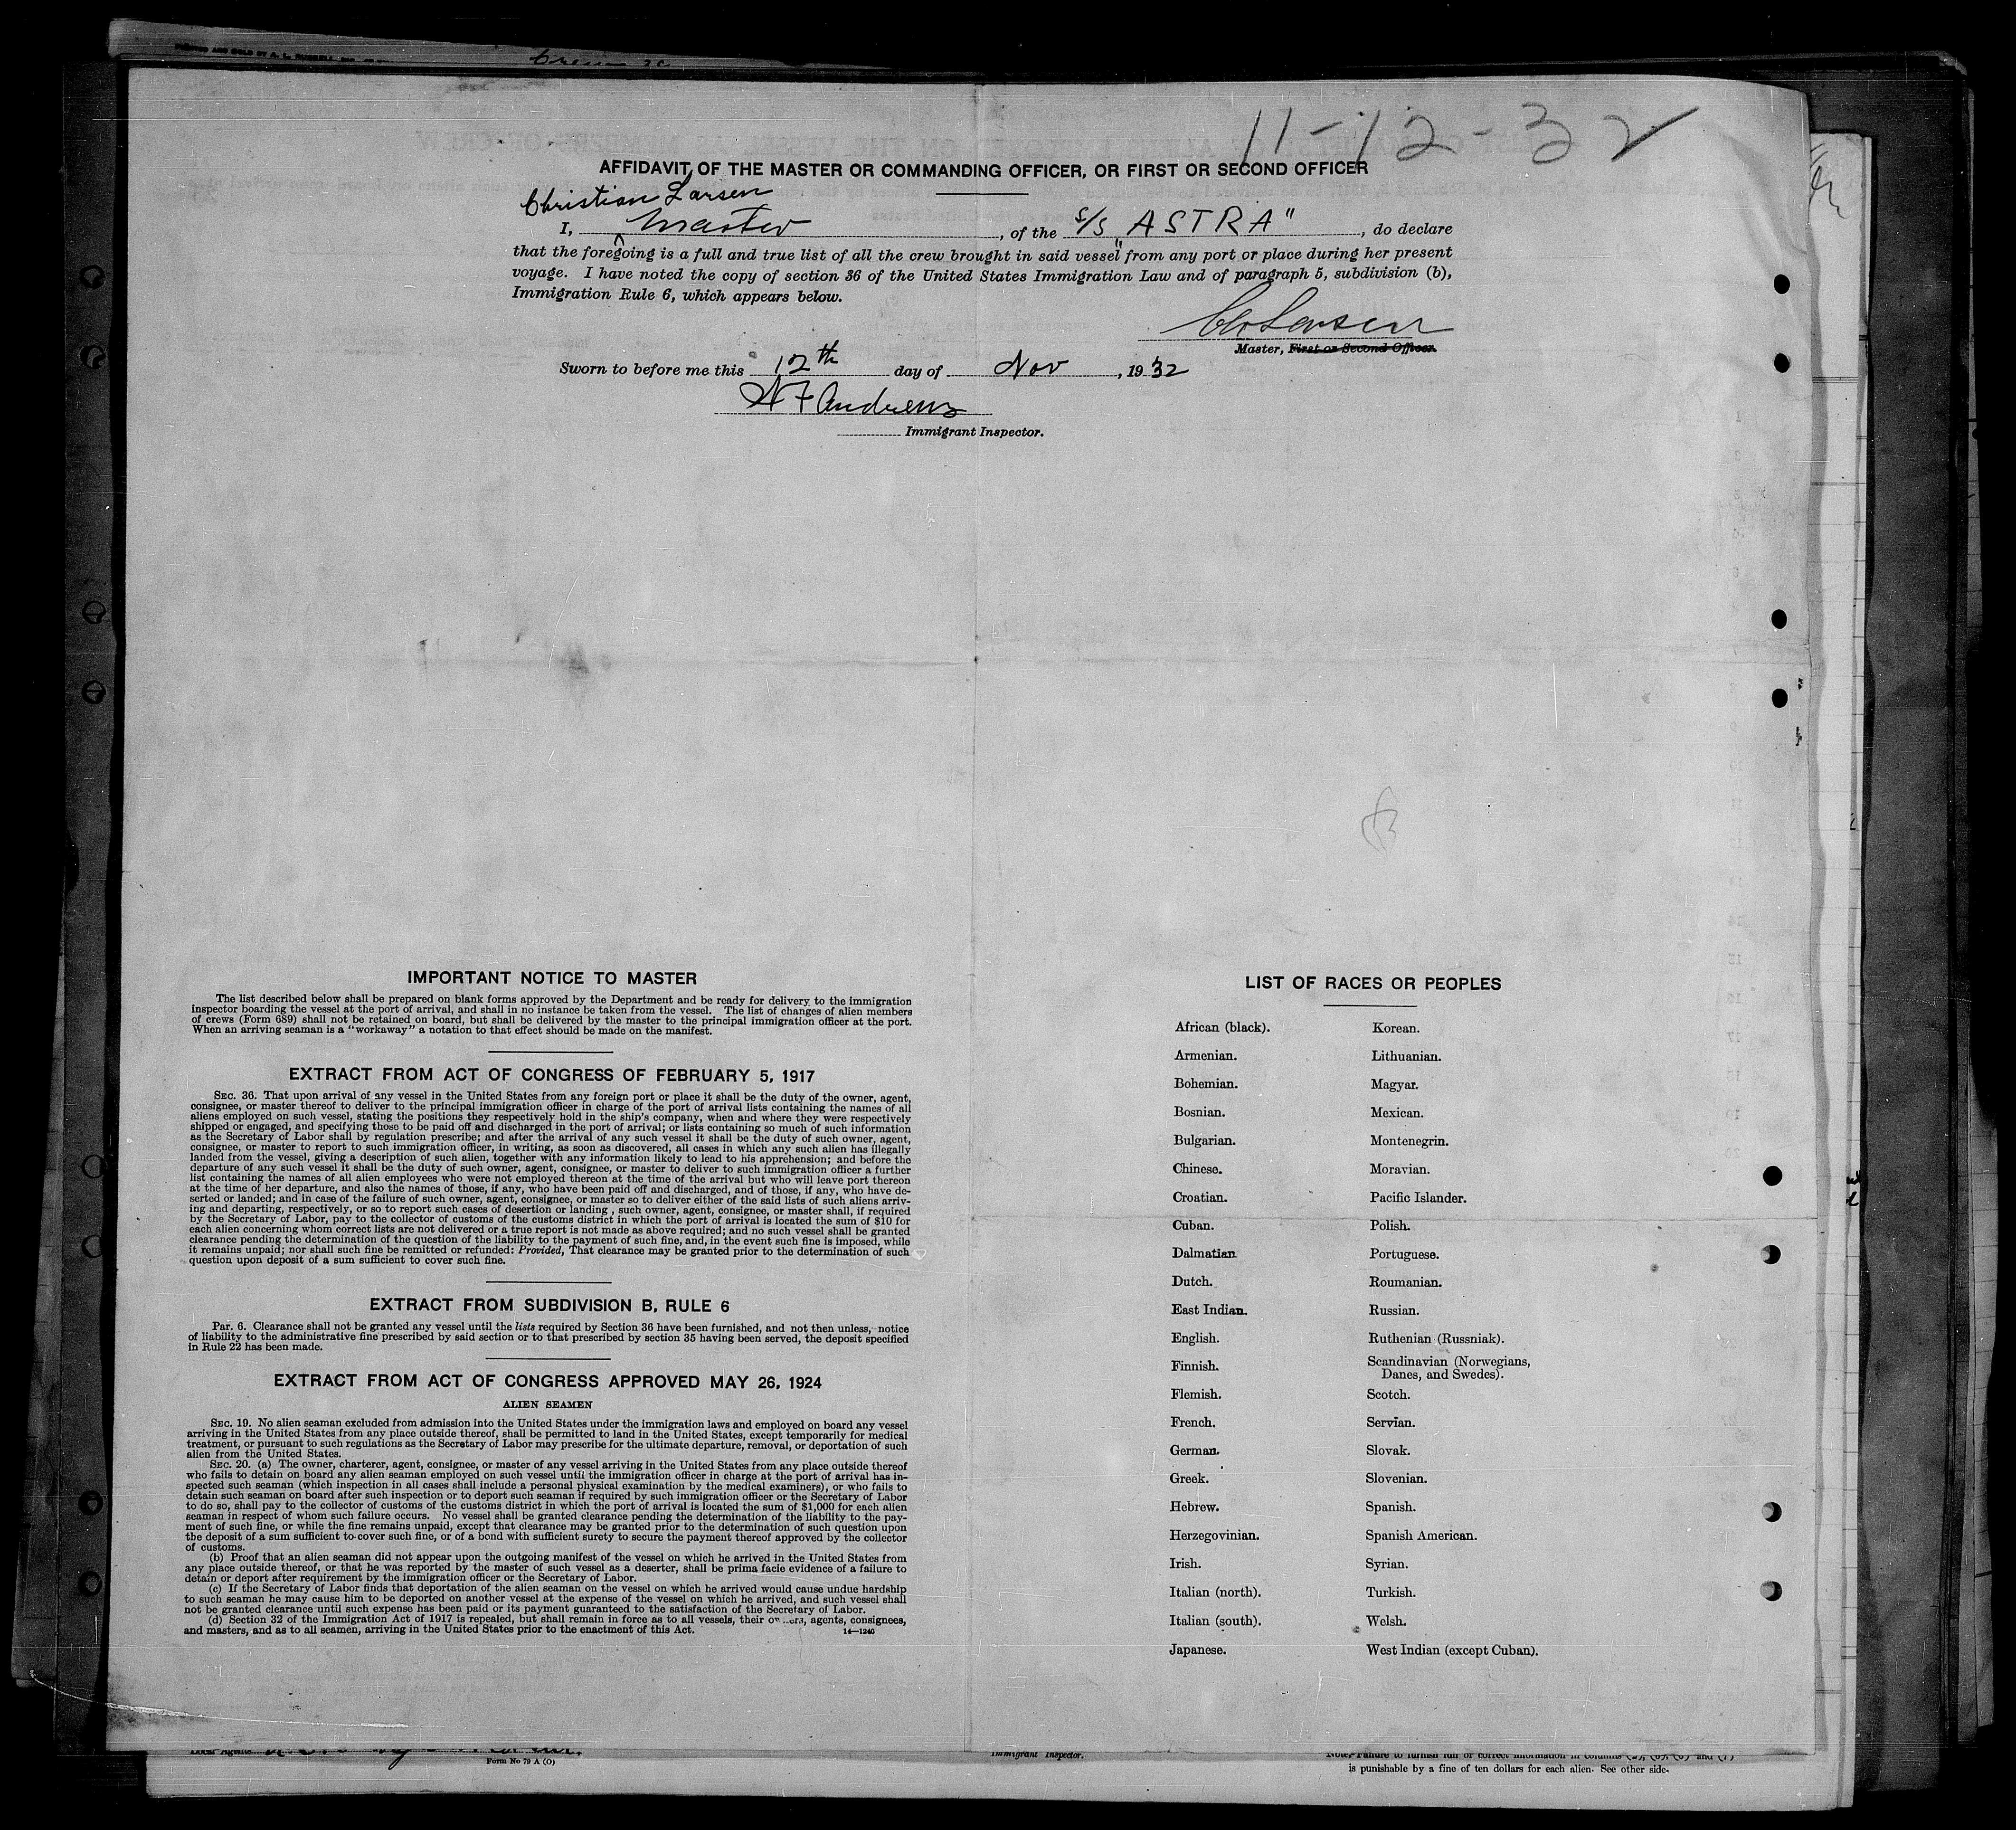 11-12-32
AFFIDAVIT OF THE MASTER OR COMMANDING OFFICER, OR FIRST OR SECOND OFFICER
Christian Larsen
I, Master, of the S/S "ASTRA", do declare
that the foregoing is a full and true list of all the crew brought in said vessel from any port or place during her present
voyage. I have noted the copy of section 36 of the United States Immigration Law and of paragraph 5, subdivision (b),
Immigration Rule 6, which appears below.
Chr Larsen
Master, First or Second Officer.
Sworn to before me this 12th day of Nov, 1932
A F Andrews
Immigrant Inspector.
IMPORTANT NOTICE TO MASTER
The list described below shall be prepared on blank forms approved by the Department and be ready for delivery to the immigration
inspector boarding the vessel at the port of arrival, and shall in no instance be taken from the vessel. The list of changes of alien members
of crews (Form 689) shall not be retained on board, but shall be delivered by the master to the principal immigration officer at the port.
When an arriving seaman is a "workaway" a notation to that effect should be made on the manifest.
EXTRACT FROM ACT OF CONGRESS OF FEBRUARY 5, 1917
SEC. 36. That upon arrival of any vessel in the United States from any foreign port or place it shall be the duty of the owner, agent,
consignee, or master thereof to deliver to the principal immigration officer in charge of the port of arrival lists containing the names of all
aliens employed on such vessel, stating the positions they respectively hold in the ship's company, when and where they were respectively
shipped or engaged, and specifying those to be paid off and discharged in the port of arrival; or lists containing so much of such information
as the Secretary of Labor shall by regulation prescribe; and after the arrival of any such vessel it shall be the duty of such owner, agent,
consignee, or master to report to such immigration officer, in writing, as soon as discovered, all cases in which any such alien has illegally
landed from the vessel, giving a description of such alien, together with any information likely to lead to his apprehension; and before the
departure of any such vessel it shall be the duty of such owner, agent, consignee, or master to deliver to such immigration officer a further
list containing the names of all alien employees who were not employed thereon at the time of the arrival but who will leave port thereon
at the time of her departure, and also the names of those, if any, who have been paid off and discharged, and of those, if any, who have de-
serted or landed; and in case of the failure of such owner, agent, consignee, or master so to deliver either of the said lists of such aliens arriv-
ing and departing, respectively, or so to report such cases of desertion or landing , such owner, agent, consignee, or master shall, if required
by the Secretary of Labor, pay to the collector of customs of the customs district in which the port of arrival is located the sum of $10 for
each alien concerning whom correct lists are not delivered or a true report is not made as above required; and no such vessel shall be granted
clearance pending the determination of the question of the liability to the payment of such fine, and, in the event such fine is imposed, while
it remains unpaid; nor shall such fine be remitted or refunded: Provided, That clearance may be granted prior to the determination of such
question upon deposit of a sum sufficient to cover such fine.
EXTRACT FROM SUBDIVISION B, RULE 6
Par. 6. Clearance shall not be granted any vessel until the lists required by Section 36 have been furnished, and not then unless, notice
of liability to the administrative fine prescribed by said section or to that prescribed by section 35 having been served, the deposit specified
in Rule 22 has been made.
EXTRACT FROM ACT OF CONGRESS APPROVED MAY 26, 1924
ALIEN SEAMEN
SEC. 19. No alien seaman excluded from admission into the United States under the immigration laws and employed on board any vessel
arriving in the United States from any place outside thereof, shall be permitted to land in the United States, except temporarily for medical
treatment, or pursuant to such regulations as the Secretary of Labor may prescribe for the ultimate departure, removal, or deportation of such
alien from the United States.
SEC. 20. (a) The owner, charterer, agent, consignee, or master of any vessel arriving in the United States from any place outside thereof
who fails to detain on board any alien seaman employed on such vessel until the immigration officer in charge at the port of arrival has in-
spected such seaman (which inspection in all cases shall include a personal physical examination by the medical examiners), or who fails to
detain such seaman on board after such inspection or to deport such seaman if required by such immigration officer or the Secretary of Labor
to do so, shall pay to the collector of customs of the customs district in which the port of arrival is located the sum of $1,000 for each alien
seaman in respect of whom such failure occurs. No vessel shall be granted clearance pending the determination of the liability to the pay-
ment of such fine, or while the fine remains unpaid, except that clearance may be granted prior to the determination of such question upon
the deposit of a sum sufficient to cover such fine, or of a bond with sufficient surety to secure the payment thereof approved by the collector
of customs.
(b) Proof that an alien seaman did not appear upon the outgoing manifest of the vessel on which he arrived in the United States from
any place outside thereof, or that he was reported by the master of such vessel as a deserter, shall be prima facie evidence of a failure to
detain or deport after requirement by the immigration officer or the Secretary of Labor.
(c) If the Secretary of Labor finds that deportation of the alien seaman on the vessel on which he arrived would cause undue hardship
to such seaman he may cause him to be deported on another vessel at the expense of the vessel on which he arrived, and such vessel shall
not be granted clearance until such expense has been paid or its payment guaranteed to the satisfaction of the Secretary of Labor.
(d) Section 32 of the Immigration Act of 1917 is repealed, but shall remain in force as to all vessels, their owners, agents, consignees,
and masters, and as to all seamen, arriving in the United States prior to the enactment of this Act.
14—1240
LIST OF RACES OR PEOPLES
African (black). Korean.
Armenian. Lithuanian.
Bohemian. Magyar.
Bosnian. Mexican.
Bulgarian. Montenegrin.
Chinese. Moravian.
Croatian. Pacific Islander.
Cuban. Polish.
Dalmatian Portuguese.
Dutch. Roumanian.
East Indian. Russian.
English. Ruthenian (Russniak).
Finnish. Scandinavian (Norwegians,
Danes, and Swedes).
Flemish. Scotch.
French. Servian.
German. Slovak.
Greek. Slovenian.
Hebrew. Spanish.
Herzegovinian. Spanish American.
Irish. Syrian.
Italian (north). Turkish.
Italian (south). Welsh.
Japanese. West Indian (except Cuban).
Form No 79 A (O)
Immigrant Inspector.
Note.-Failure to furnish full or correct information in columns (2), (5), (6) and (7)
is punishable by a fine of ten dollars for each alien. See other side.